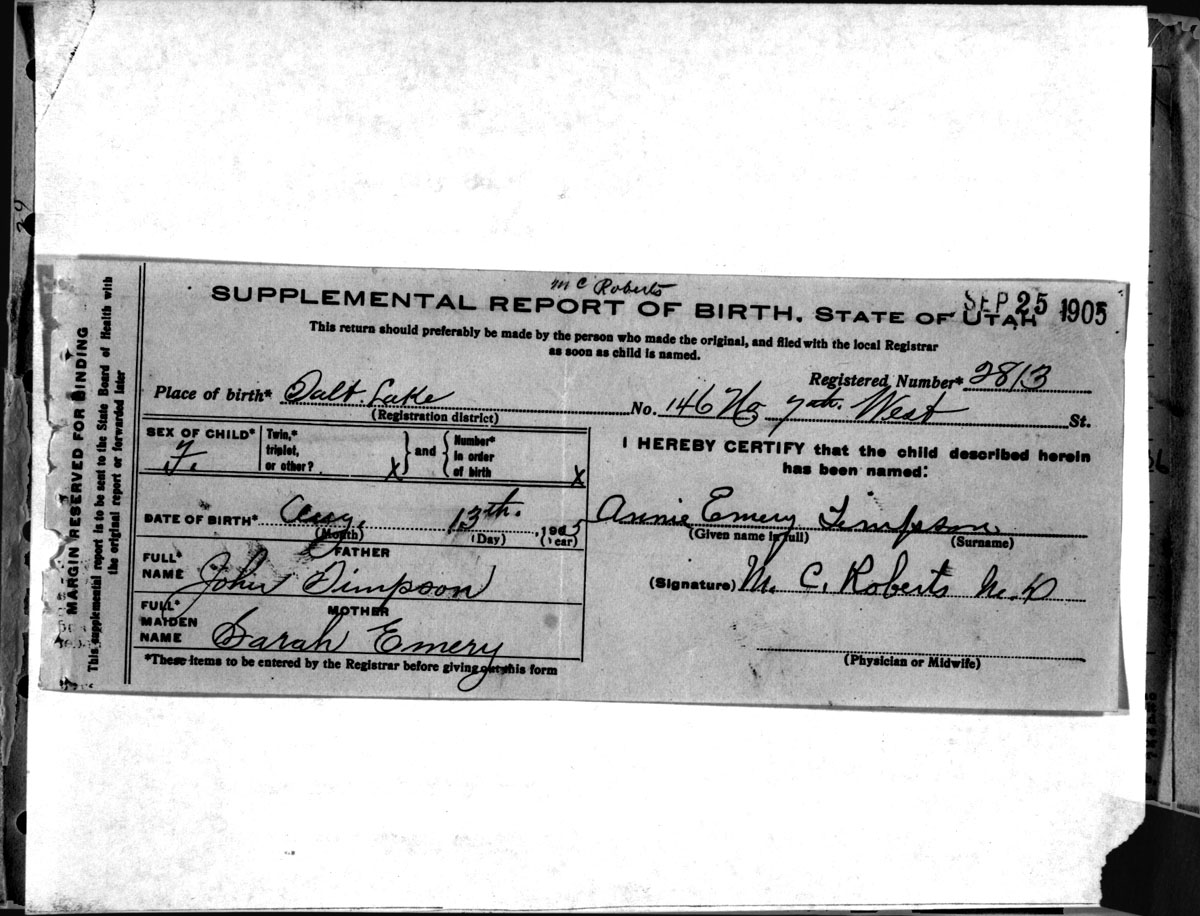 Mc Roberts
SUPPLEMENTAL REPORT OF BIRTH. STATE OF UTAH SEP 25 1905
This return should preferably be made by the person who made the original, and filed with the local Registrar
as soon as child is named.
Registered Number* 2813
Place of birth* Salt Lake No. 146 No 7th. West St.
(Registration district)
SEX OF CHILD* F.
Twin,*
triplet,
or other? X
and
Number*
in order
of birth X
I HEREBY CERTIFY that the child described herein
has been named:
DATE OF BIRTH* Aug. 13th. 1905
(Month) (Day) (Year)
Annie Emery Timpson
(Given name in full) (Surname)
FATHER
FULL*
NAME John Timpson
(Signature) M. C. Roberts M.D
MOTHER
FULL*
MAIDEN
NAME Sarah Emery
(Physician or Midwife)
*These items to be entered by the Registrar before giving out this form
MARGIN RESERVED FOR BINDING
This supplemental report is to be sent to the State Board of Health with
the original report or forwarded later
29